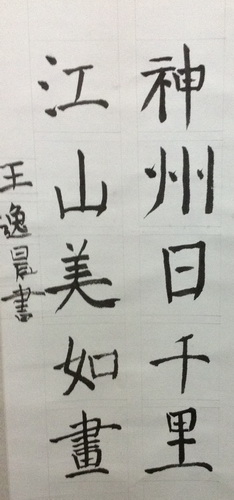 神州日千里
江山美如畫
王逸晨書